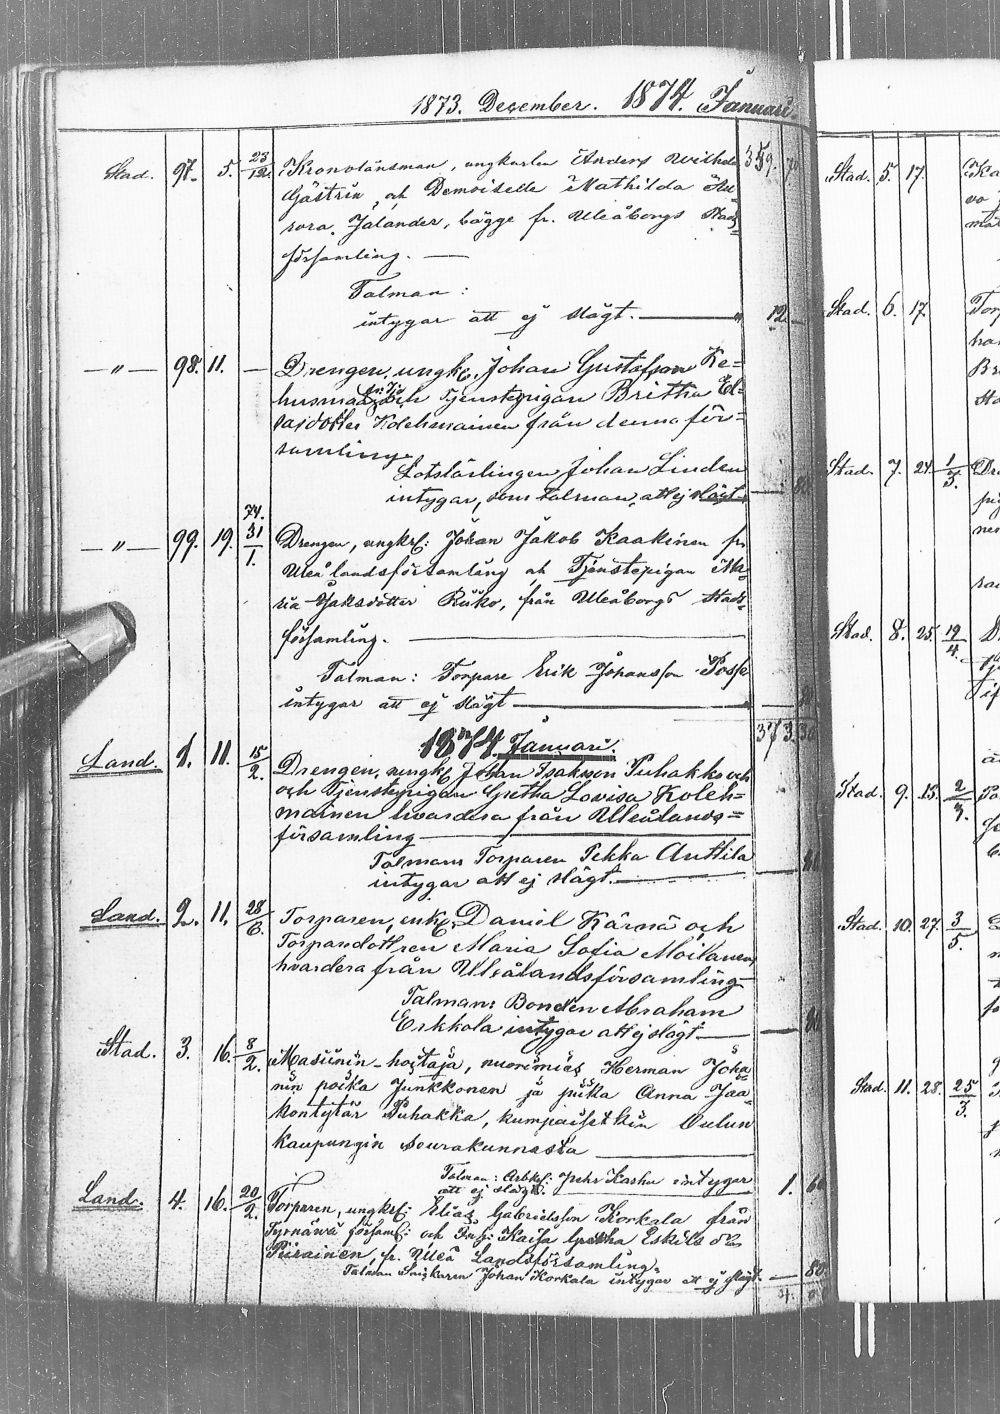 1873. December. 1874. Januari.
Stad. 97. 5. 23/12. Kronolänsman, ungkarlen Anders Wilhelm 359. 70
Gästrin och Demoiselle Mathilda Au-
rora Jalander, bägge fr. Uleåborgs Stads
församling. —
Talman:
intygar att ej slägt. — " 12 —
— " — 98. 11. — Drengen, ungk. Johan Gustafsson Ke-
husmaa och Tjenstepigan Britha El-
sasdotter Kolehmainen från denna för-
samling.
Lotslärlingen Johan Linden
intygar, som talman, att ej slägt — 80
74.
— " — 99. 19. 31/1. Drengen, ungkrl: Johan Jakob Kaakinen fr
Uleå landsförsamling och Tjenstepigan Ma-
ria Jaksdotter Ruko, från Uleåborgs Stads-
församling. —
Talman: Torpare Erik Johansson Posse
intygar att ej slägt —
373. 30
1874. Januari.
Land. 1. 11. 15/2. Drengen, ungk. Johan Isaksson Puhakko och
och Tjenstepigan Gretha Lovisa Koleh-
mainen hvardera från Uleålands-
församling —
Talman Torparen Pekka Anttila
intygar att ej slägt. — 80
Land. 2. 11. 28/6. Torparen, enkl. Daniel Kärnä och
Torpardottren Maria Sofia Moilanen
hvardera från Uleålandsförsamling
Talman: Bonden Abraham
Erkkola intygar att ej slägt — 80
Stad. 3. 16. 8/2. Masiinin-hoitaja, nuorimies Herman Joha
nin poika Junkkonen ja piika Anna Jaa-
kontytär Puhakka, kumpaisetkin Oulun
kaupungin seurakunnasta —
Talman: Arbkrl: Pehr Karhu intygar
att ej slägt. — 1. 60
Land. 4. 16. 20/2. Torparen, ungkrl: Elias Gabrielsson Korkala från
Tyrnäwä församl: och Pig: Kaisa Gretha Eskils dtr
Piirainen, fr. Uleå Landsförsamling.
Talman Snickaren Johan Korkala intygar att ej slägt. — 80
4.
Stad. 5. 17.
Stad. 6. 17. Torp
Stad. 7. 24. 1/3. Dre
Stad. 8. 25. 19/4.
Stad. 9. 13. 2/3.
Stad. 10. 27. 3/5.
Stad. 11. 28. 25/3.